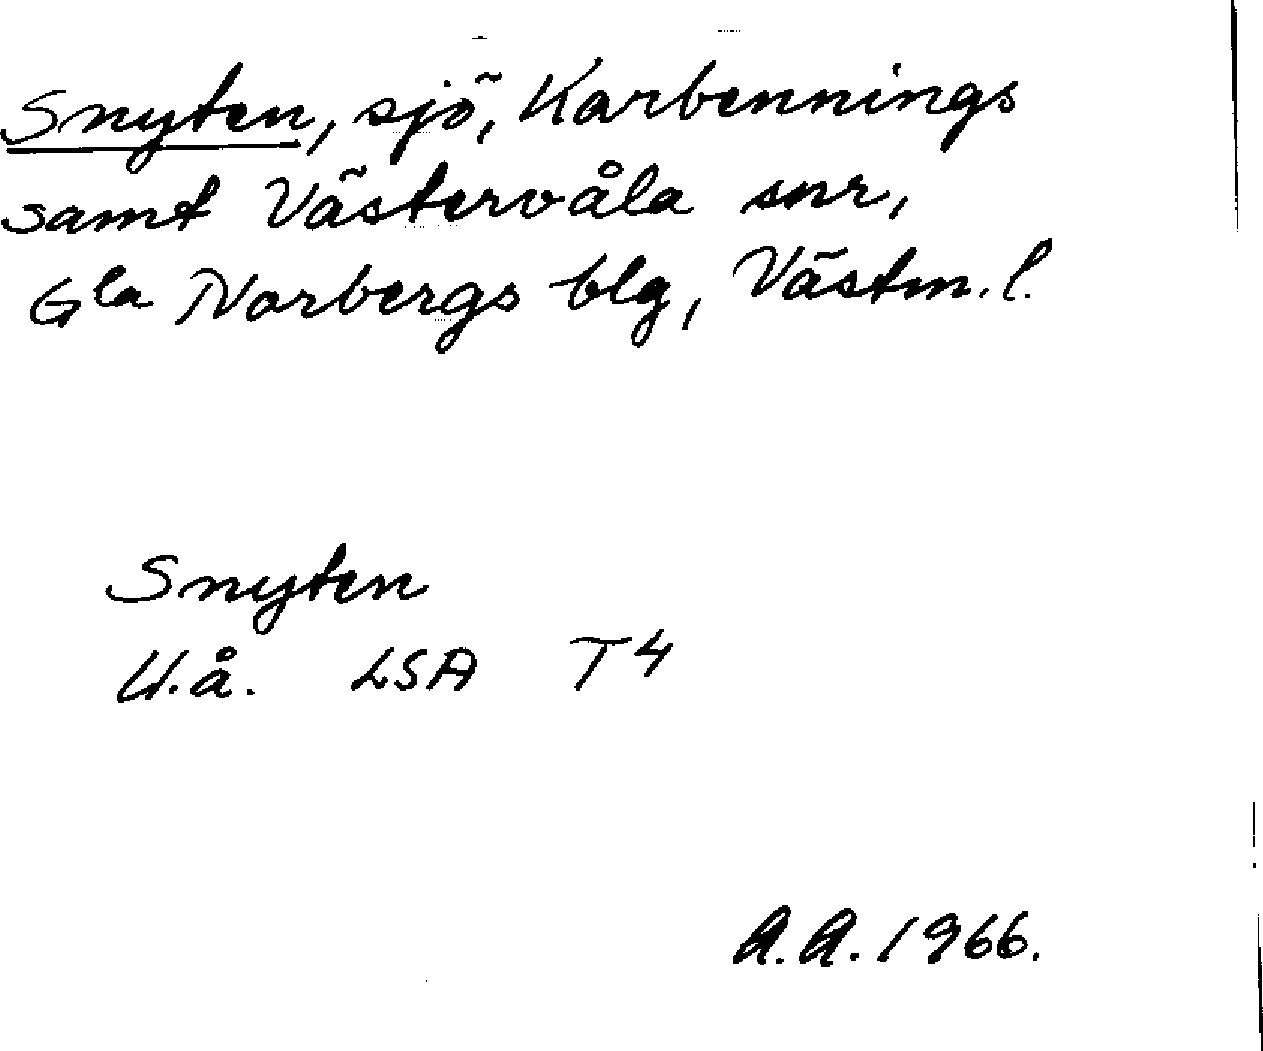 Snyten, sjö, Karbennings
samt Västervåla snr,
Gla Norbergs blg, Västm.l.
Snyten
U.å. LSA T4
A.A. 1966.